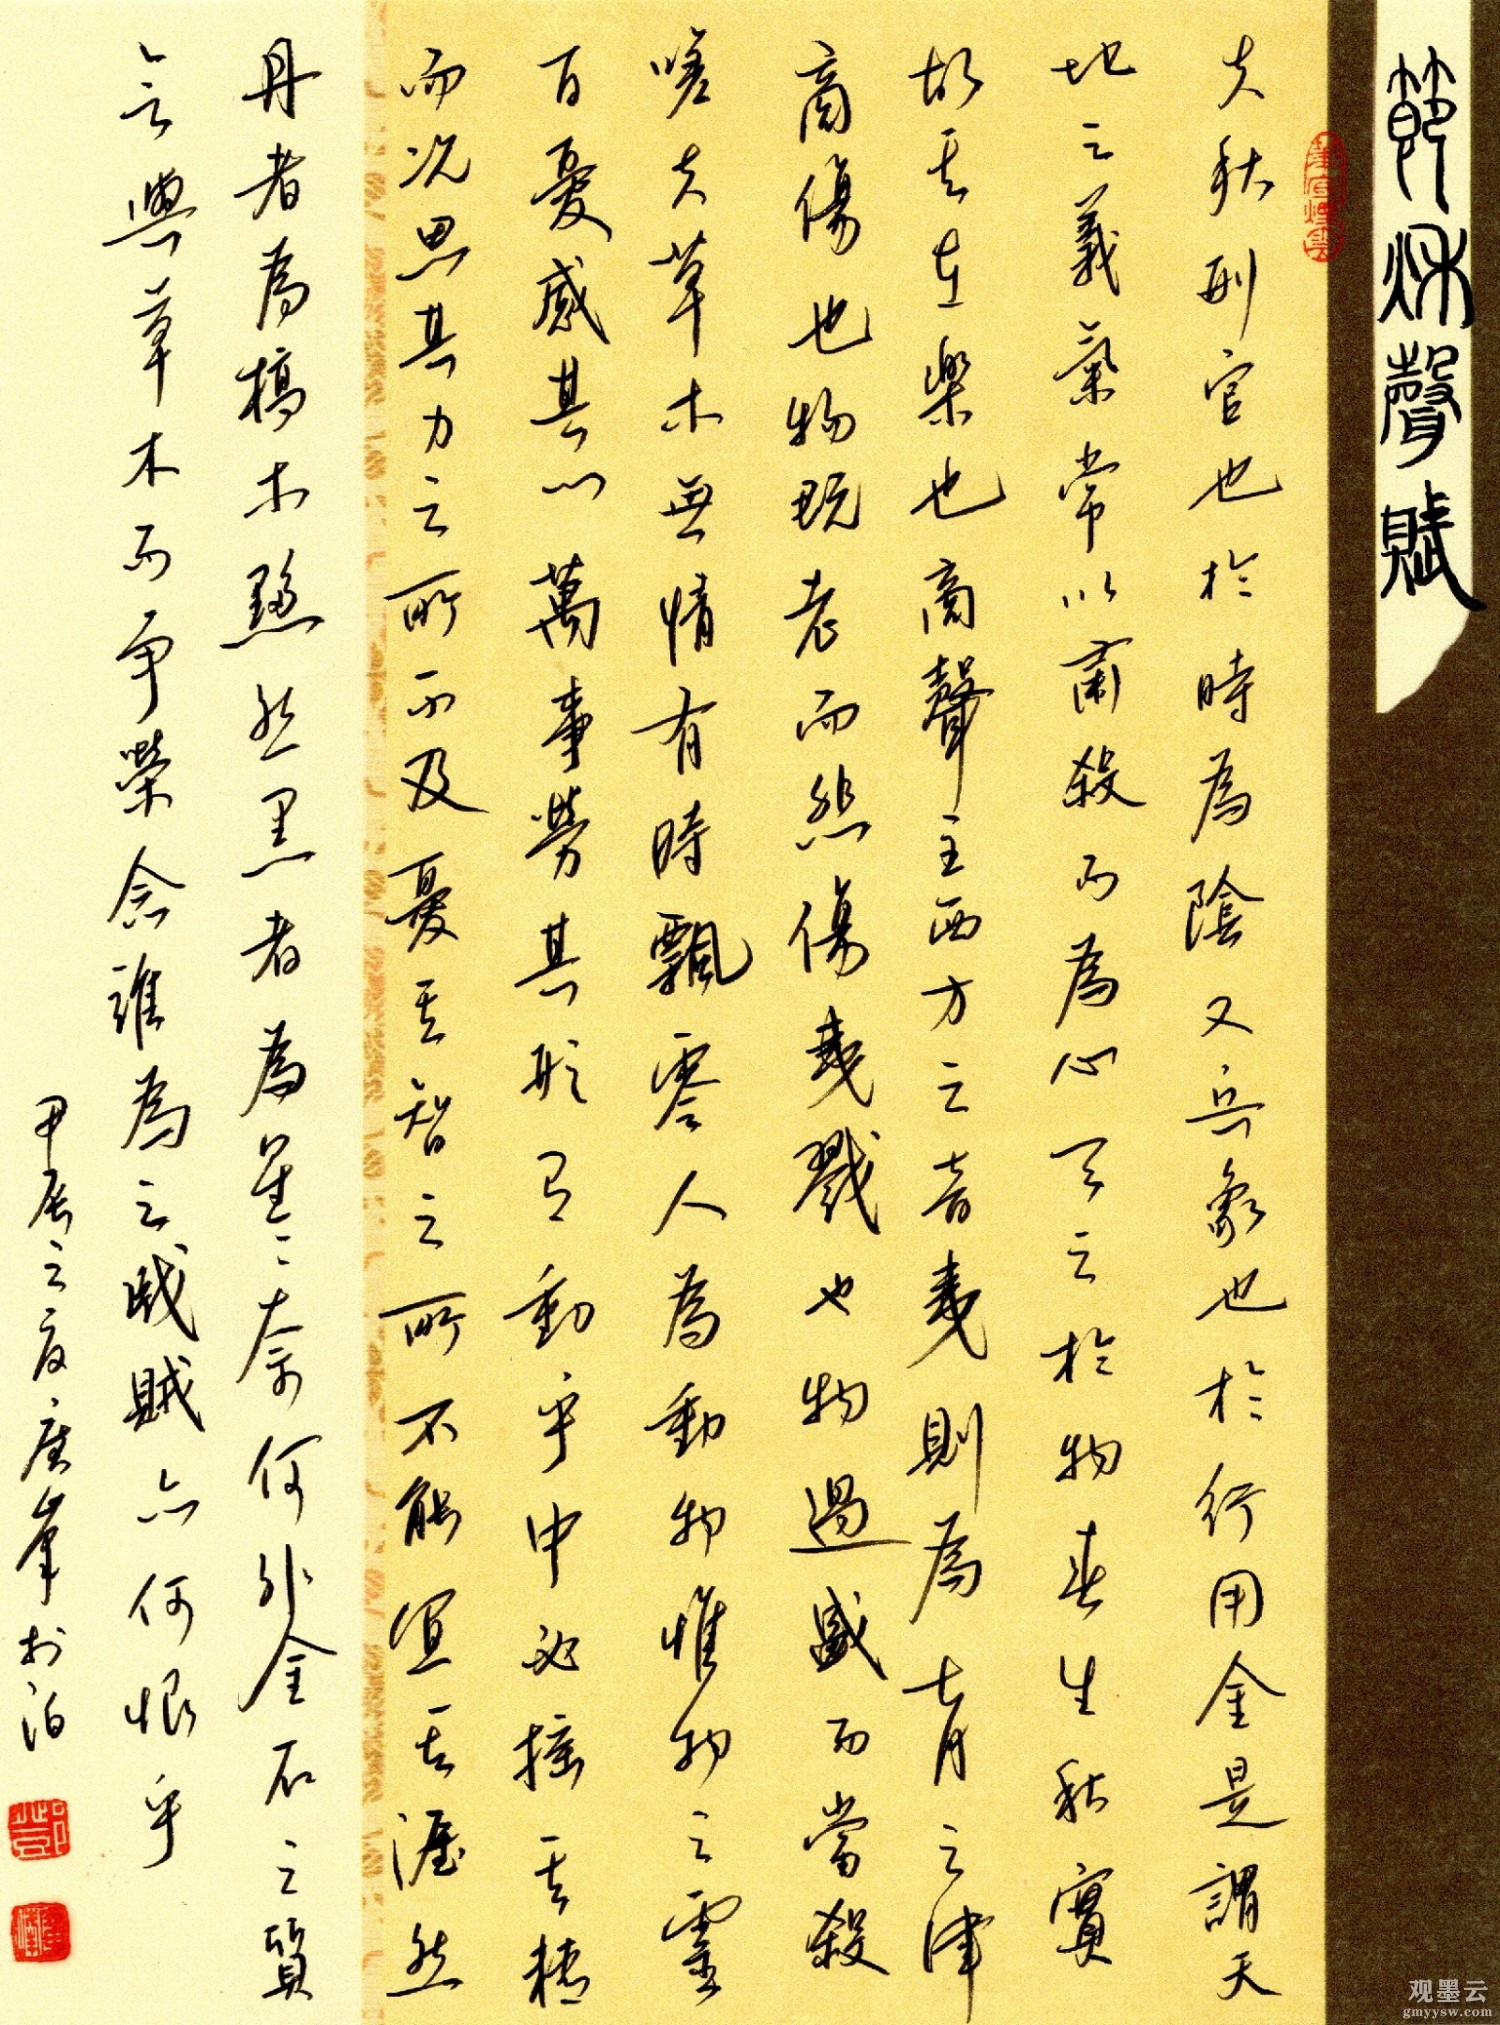 節秋聲賦
夫秋刑官也於時為陰又兵象也於行用金是謂天
地之義氣常以肅殺而為心天之於物春生秋實
故其在樂也商聲主西方之音夷則為七月之律
商傷也物既老而悲傷夷戮也物過盛而當殺
嗟夫草木無情有時飄零人為動物惟物之靈
百憂感其心萬事勞其形有動乎中必搖其精
而況思其力之所不及憂其智之所不能宜其渥然
丹者為槁木黟然黑者為星〻奈何非金石之質
與草木而爭榮念誰為之戕賊亦何恨乎
甲辰之夏峯於泊
观墨云
gmyysw.com